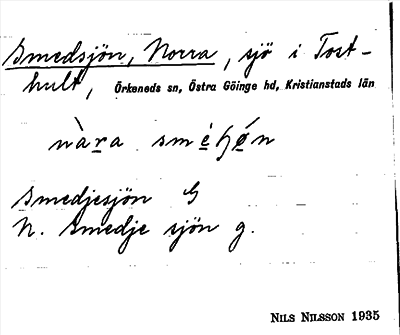 Smedsjön, Norra, sjö i Tost-
hult, Örkeneds sn, Östra Göinge hd, Kristianstads län
nàra smèɧǿn
Smedjesjön G
N. Smedje sjön g.
NILS NILSSON 1935